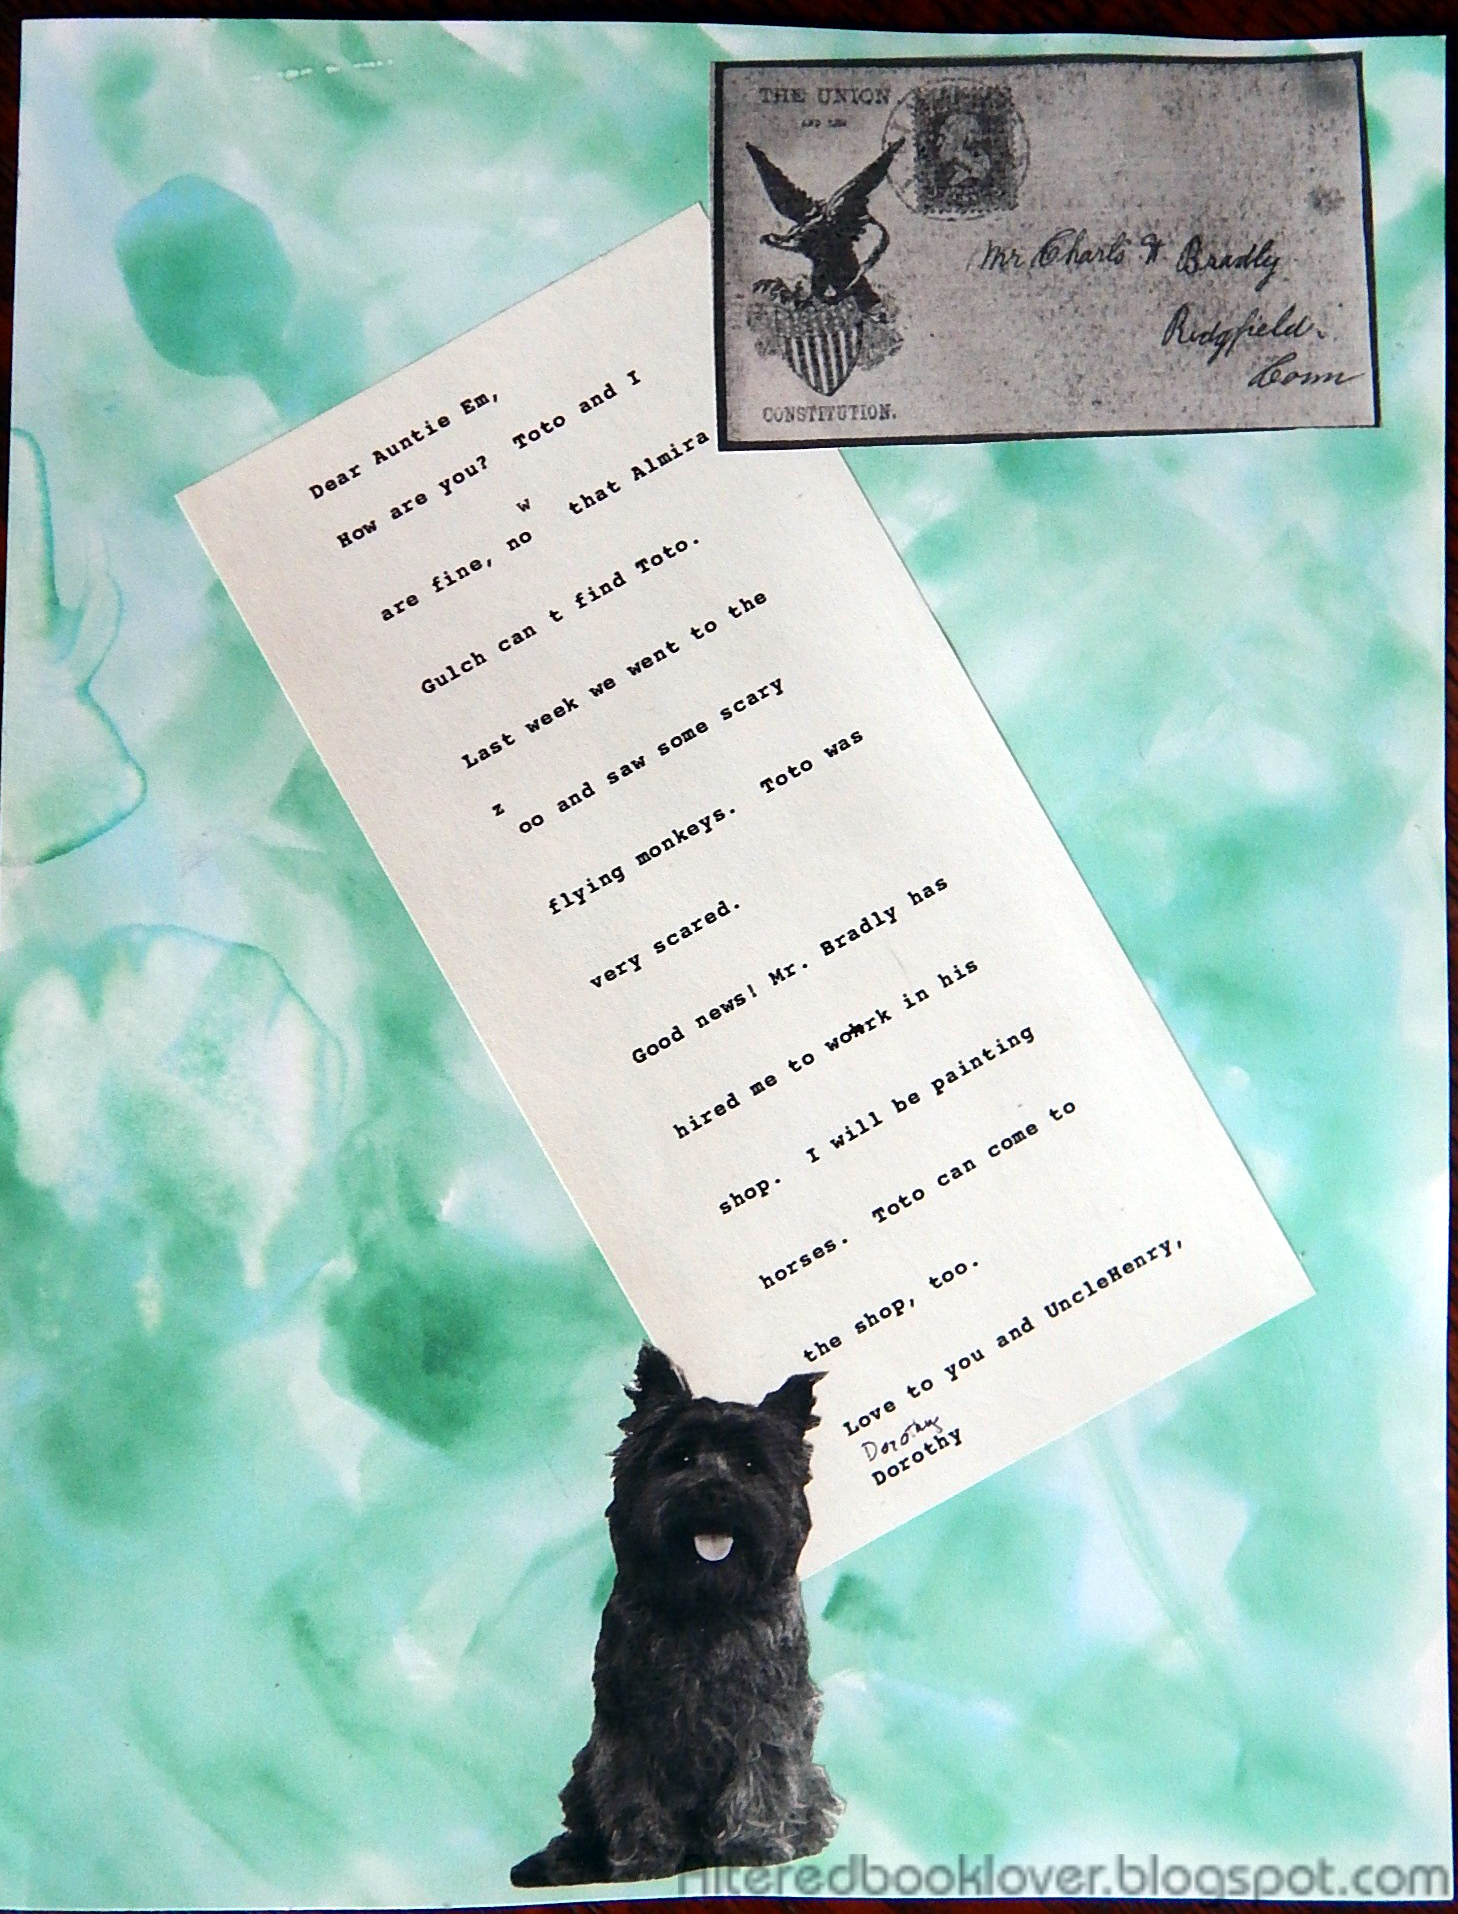 THE UNION
AND THE
CONSTITUTION.
Mr Charls W Bradly
Ridgfield.
Conn
Dear Auntie Em,
How are you? Toto and I
are fine, now that Almira
Gulch can t find Toto.
Last week we went to the
zoo and saw some scary
flying monkeys. Toto was
very scared.
Good news! Mr. Bradly has
hired me to work in his
shop. I will be painting
horses. Toto can come to
the shop, too.
Love to you and UncleHenry,
Dorothy
Dorothy
Alteredbooklover.blogspot.com